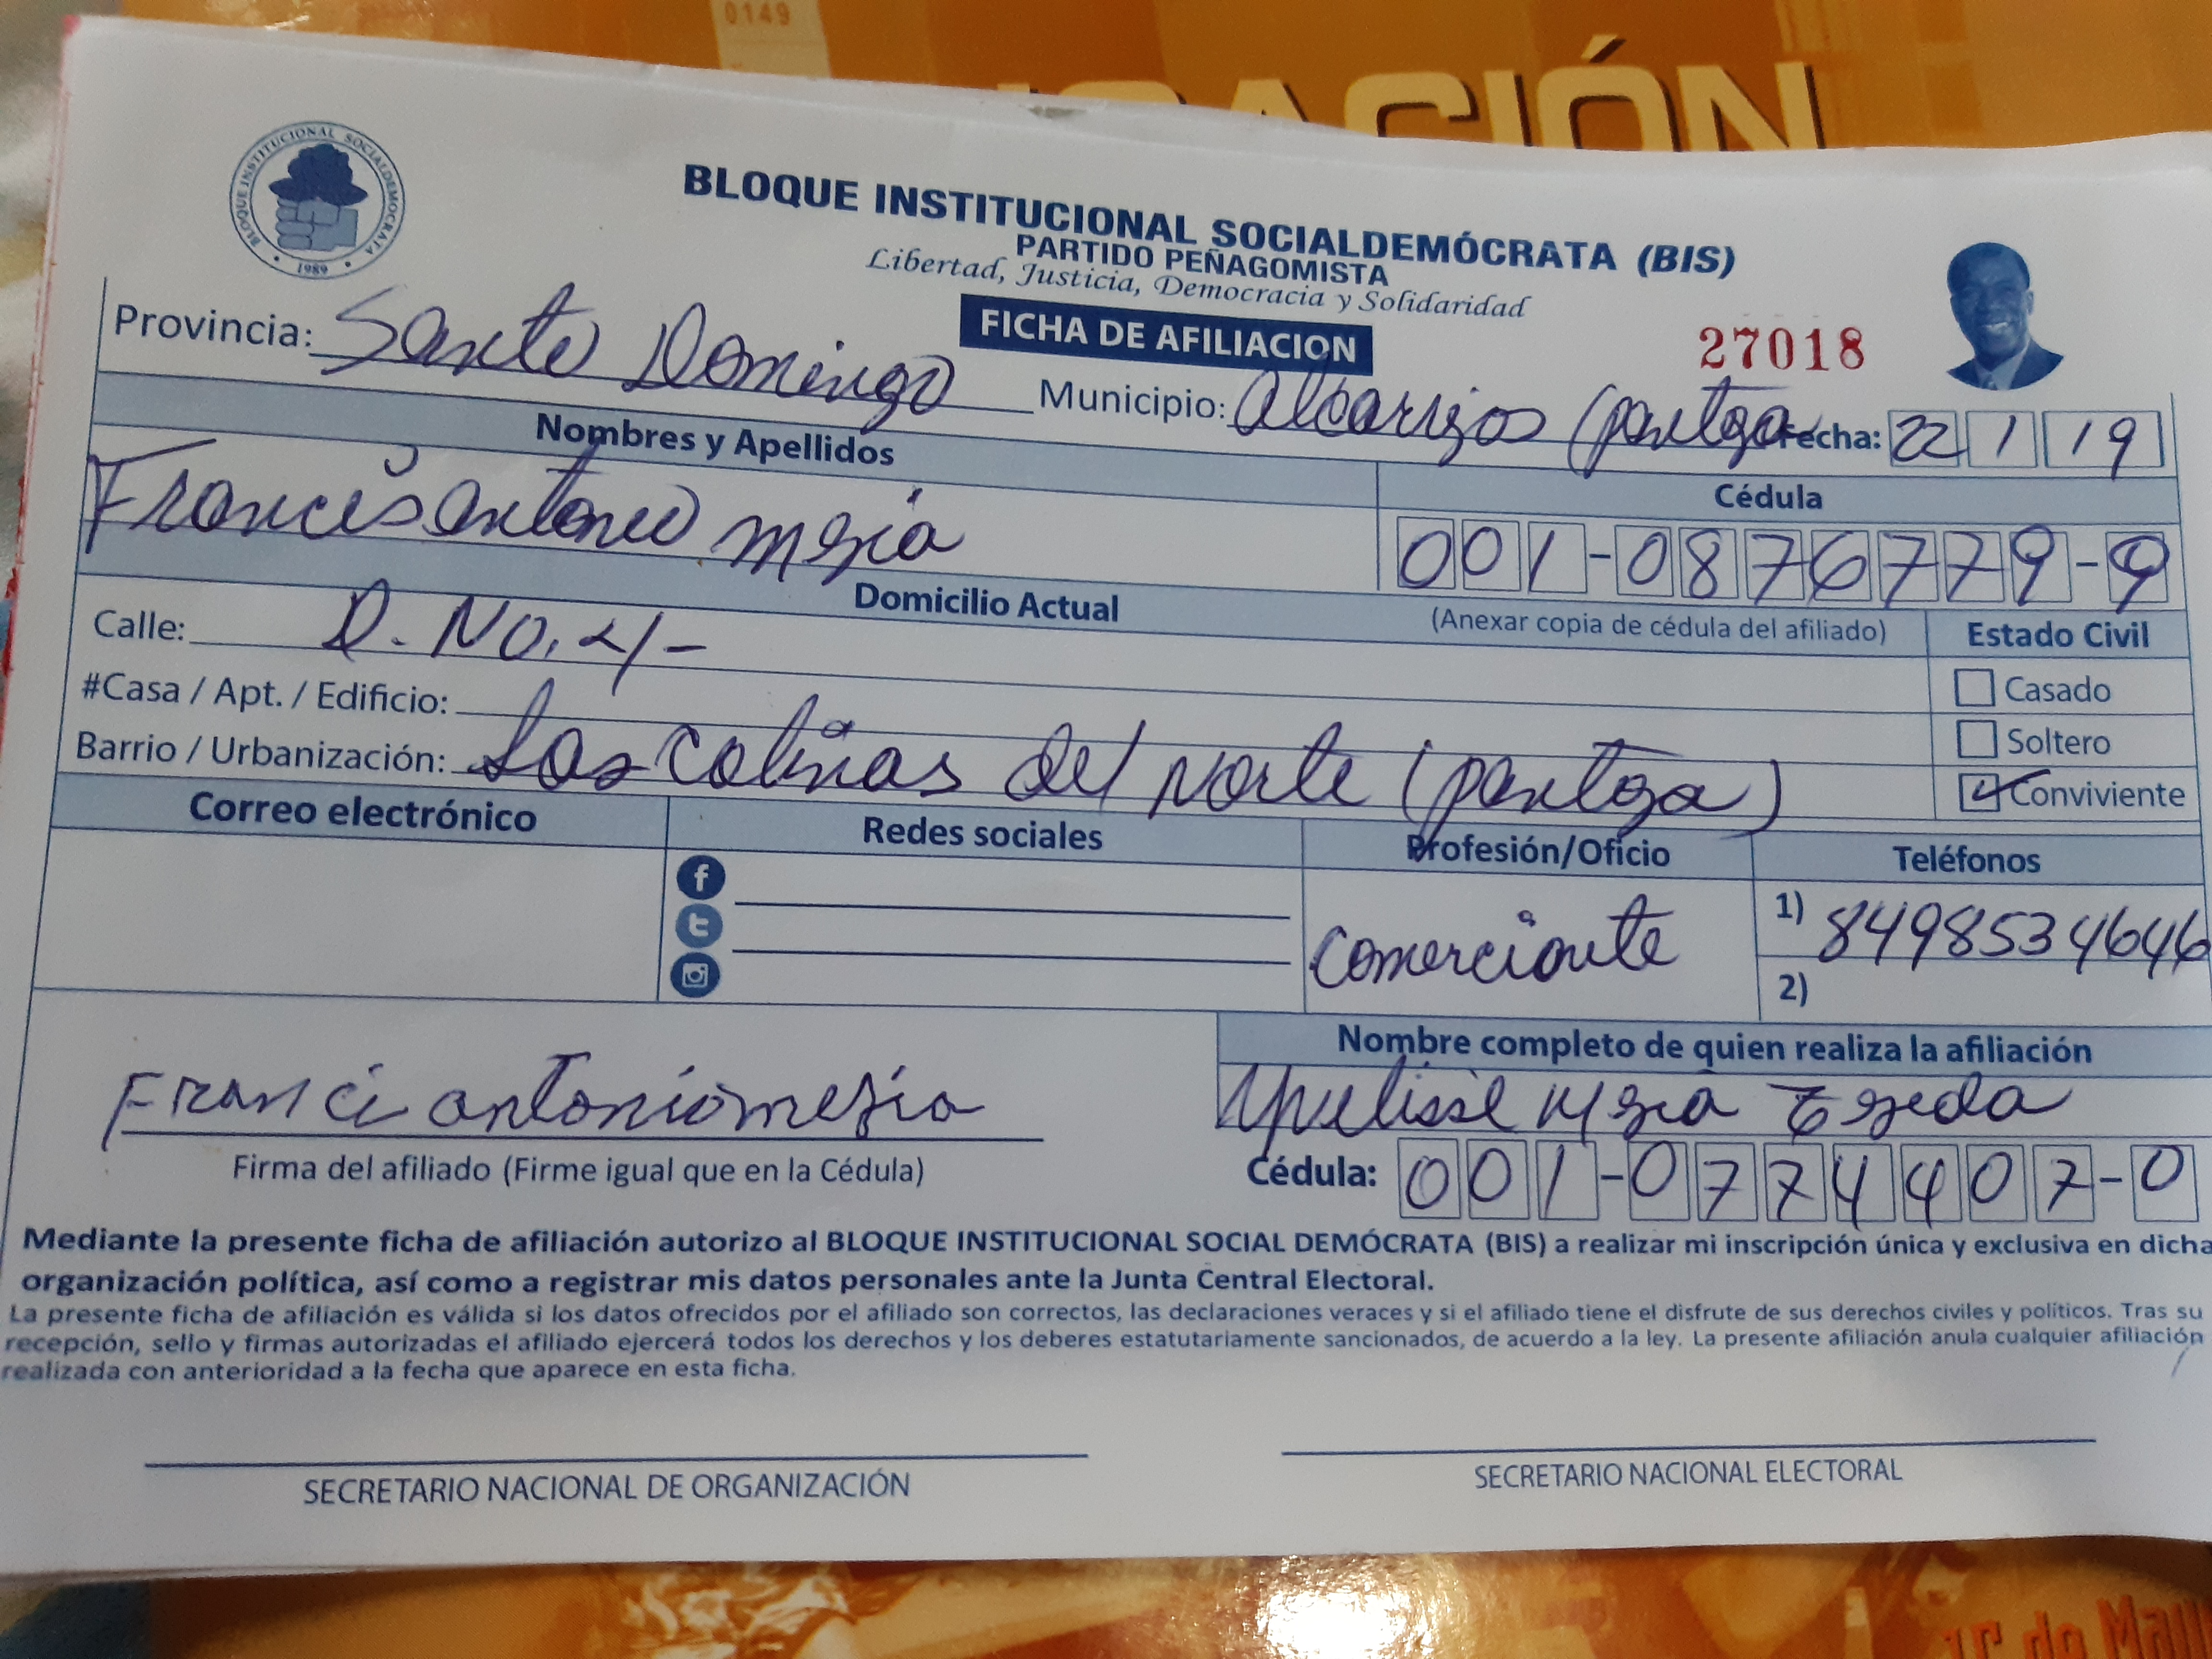 0149
CACIÓN
BLOQUE INSTITUCIONAL SOCIALDEMOCRATA
1989
BLOQUE INSTITUCIONAL SOCIALDEMÓCRATA (BIS)
PARTIDO PEÑAGOMISTA
Libertad, Justicia, Democracia y Solidaridad
FICHA DE AFILIACION
27018
Provincia: Santo Domingo Municipio: Alcarrizos (pantoja Fecha: 22 1 19
Nombres y Apellidos
Cédula
Francis antonio mejia
001-0876779-9
Domicilio Actual
(Anexar copia de cédula del afiliado)
Estado Civil
Calle: D. NO. 4-
Casado
#Casa / Apt. / Edificio:
Soltero
Barrio / Urbanización: Las Colinas del Norte (pantoja)
Conviviente
Correo electrónico
Redes sociales
Profesión/Oficio
Teléfonos
comerciante
1) 8498534646
2)
Nombre completo de quien realiza la afiliación
Mejia Tejeda
Franci antonio mejia
Firma del afiliado (Firme igual que en la Cédula)
Cédula: 001-0774407-0
Mediante la presente ficha de afiliación autorizo al BLOQUE INSTITUCIONAL SOCIAL DEMÓCRATA (BIS) a realizar mi inscripción única y exclusiva en dicha
organización política, así como a registrar mis datos personales ante la Junta Central Electoral.
La presente ficha de afiliación es válida si los datos ofrecidos por el afiliado son correctos, las declaraciones veraces y si el afiliado tiene el disfrute de sus derechos civiles y políticos. Tras su
recepción, sello y firmas autorizadas el afiliado ejercerá todos los derechos y los deberes estatutariamente sancionados, de acuerdo a la ley. La presente afiliación anula cualquier afiliación
realizada con anterioridad a la fecha que aparece en esta ficha.
SECRETARIO NACIONAL DE ORGANIZACIÓN
SECRETARIO NACIONAL ELECTORAL